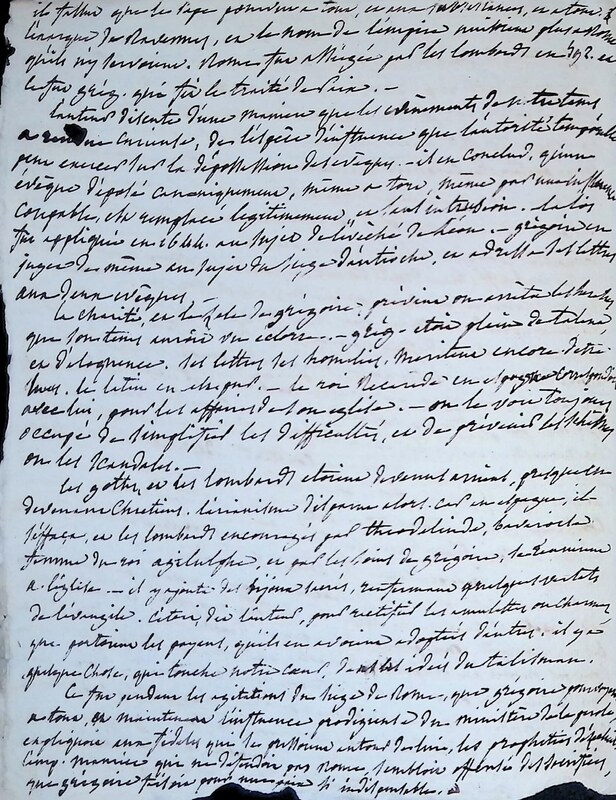 il fallut que le Pape pourvut à tout, et aux subsistances, et à tout.
l'exarque de Ravennes, et le nom de l'empire nuisirent plus à Rome
qu'ils n'y servirent. Rome fut assiégée par les lombards en 592. et
ce fut grég. que fit le traité de Paix. —
l'auteur discute d'une maniere que les evénements de notre tems
a rendue curieuse, de l'espèce d'influence que l'autorité temporelle
peut exercer sur la dépossession des évêques. — il en conclud, qu'un
évêque déposé canoniquement, même a tort, même par
coupable, est remplacé légitimement, et sans intrusion. la loi
fut appliquée en 1644. au sujet de l'évêché de Leon. — grégoire en
jugea de même au sujet du siege d'antioche, et adressa ses lettres
aux deux evêques.
la charité, et le zele de grégoire, prévint ou arrêta les
que son tems auroit vu eclore. — grég. etoit plein de talent
et d'eloquence. ses lettres ses homelies, méritent encore d'etre
lues. — le roi Recarede en espagne correspondit
avec lui, pour les affaires de son eglise. — on le voit toujours
occupé de simplifier les difficultés, et de prévenir les schismes
ou les scandales. —
les goths, et les lombards etoient devenus arriens, presque en
devenant Chrétiens. l'arianisme disparut alors. car en espagne, il
s'effaça, et les lombards encouragés par theodelinde, bavaroise
femme du roi agilulphe, et par les soins de grégoire, se réunirent
a l'église. — il y ajouta des bijoux sacrés, renfermant quelques versets
de l'évangile. c'etoit dit l'auteur, pour rectifier les amulettes ou charmes
que portoient les payens, qu'ils en avoient adoptés d'autres. il y a
quelque chose, que touche notre coeur, dans les idées du talisman.
Ce fut pendant les agitations du siege de Rome, que grégoire pourvoyant
a tout, et maintenant l'influence prodigieuse du ministère de la parole
expliquoit aux fideles qui se pressoient autour de lui, les prophéties d'ezechiel
l'emp. Maurice qui ne défendoit pas Rome, sembloit offensé des
que grégoire faisoit pour un si indispensable.